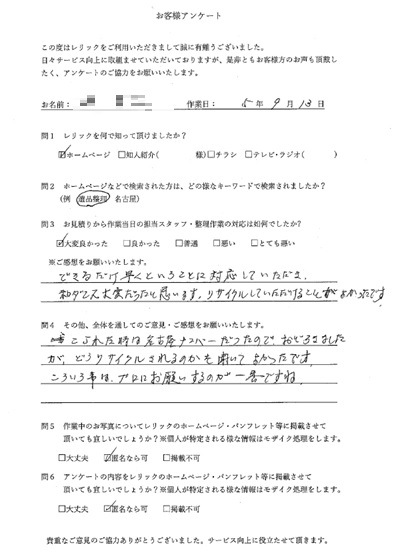 お客様アンケート
この度はレリックをご利用いただきまして誠に有難うございました。
日々サービス向上に取組ませていただいておりますが、是非ともお客様方のお声も頂戴し
たく、アンケートのご協力をお願いいたします。
お名前： 作業日： 5 年 9 月 13 日
問1 レリックを何で知って頂けましたか？
☑ホームページ □知人紹介( 様)□チラシ □テレビ・ラジオ( )
問2 ホームページなどで検索された方は、どの様なキーワードで検索されましたか？
(例 遺品整理 名古屋)
問3 お見積りから作業当日の担当スタッフ・整理作業の対応は如何でしたか？
☑大変良かった □良かった □普通 □悪い □とても悪い
※ご感想をお願いいたします。
できるだけ早くということに対応していただき、
大変だったと思います。リサイクルしていただけることがよかったです
問4 その他、全体を通してのご意見・ご感想をお願いいたします。
こられた時は名古屋ナンバーだったので、おどろきました
が、どうリサイクルされるのかも聞いてよかったです。
こういう事は、プロにお願いするのが一番ですね
問5 作業中のお写真についてレリックのホームページ・パンフレット等に掲載させて
頂いても宜しいでしょうか？※個人が特定される様な情報はモザイク処理をします。
□大丈夫 ☑匿名なら可 □掲載不可
問6 アンケートの内容をレリックのホームページ・パンフレット等に掲載させて
頂いても宜しいでしょうか？※個人が特定される様な情報はモザイク処理をします。
□大丈夫 ☑匿名なら可 □掲載不可
貴重なご意見のご協力ありがとうございました。サービス向上に役立たせて頂きます。